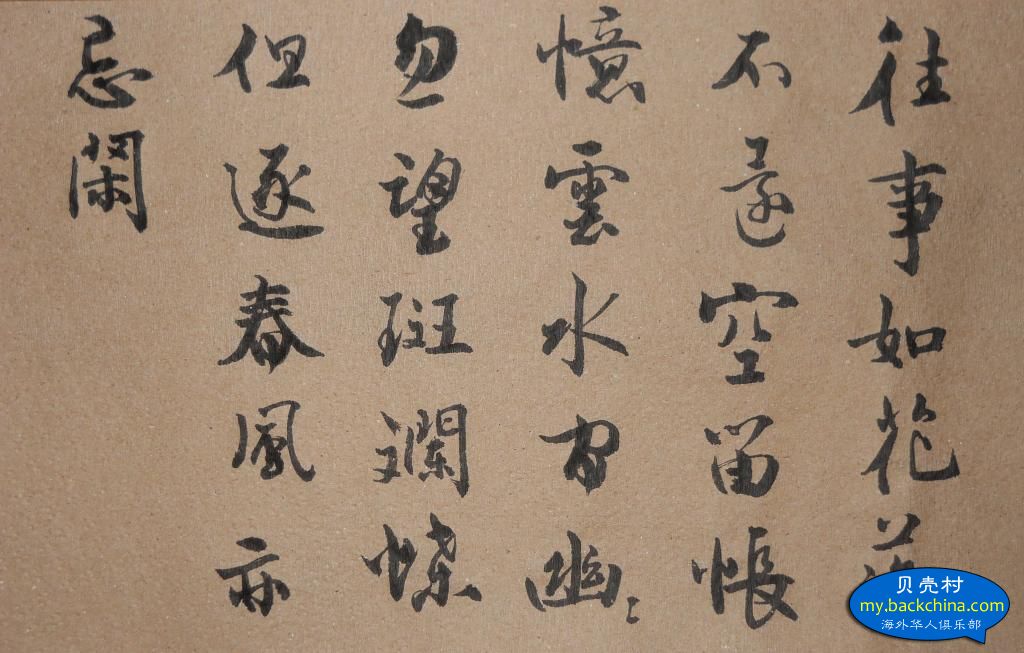 往事如花落
不還空留悵
憶雲水間幽〻
忽望斑斕蝶
但逐春風亦
忘閑
贝壳村
my.backchina.com
海外华人俱乐部